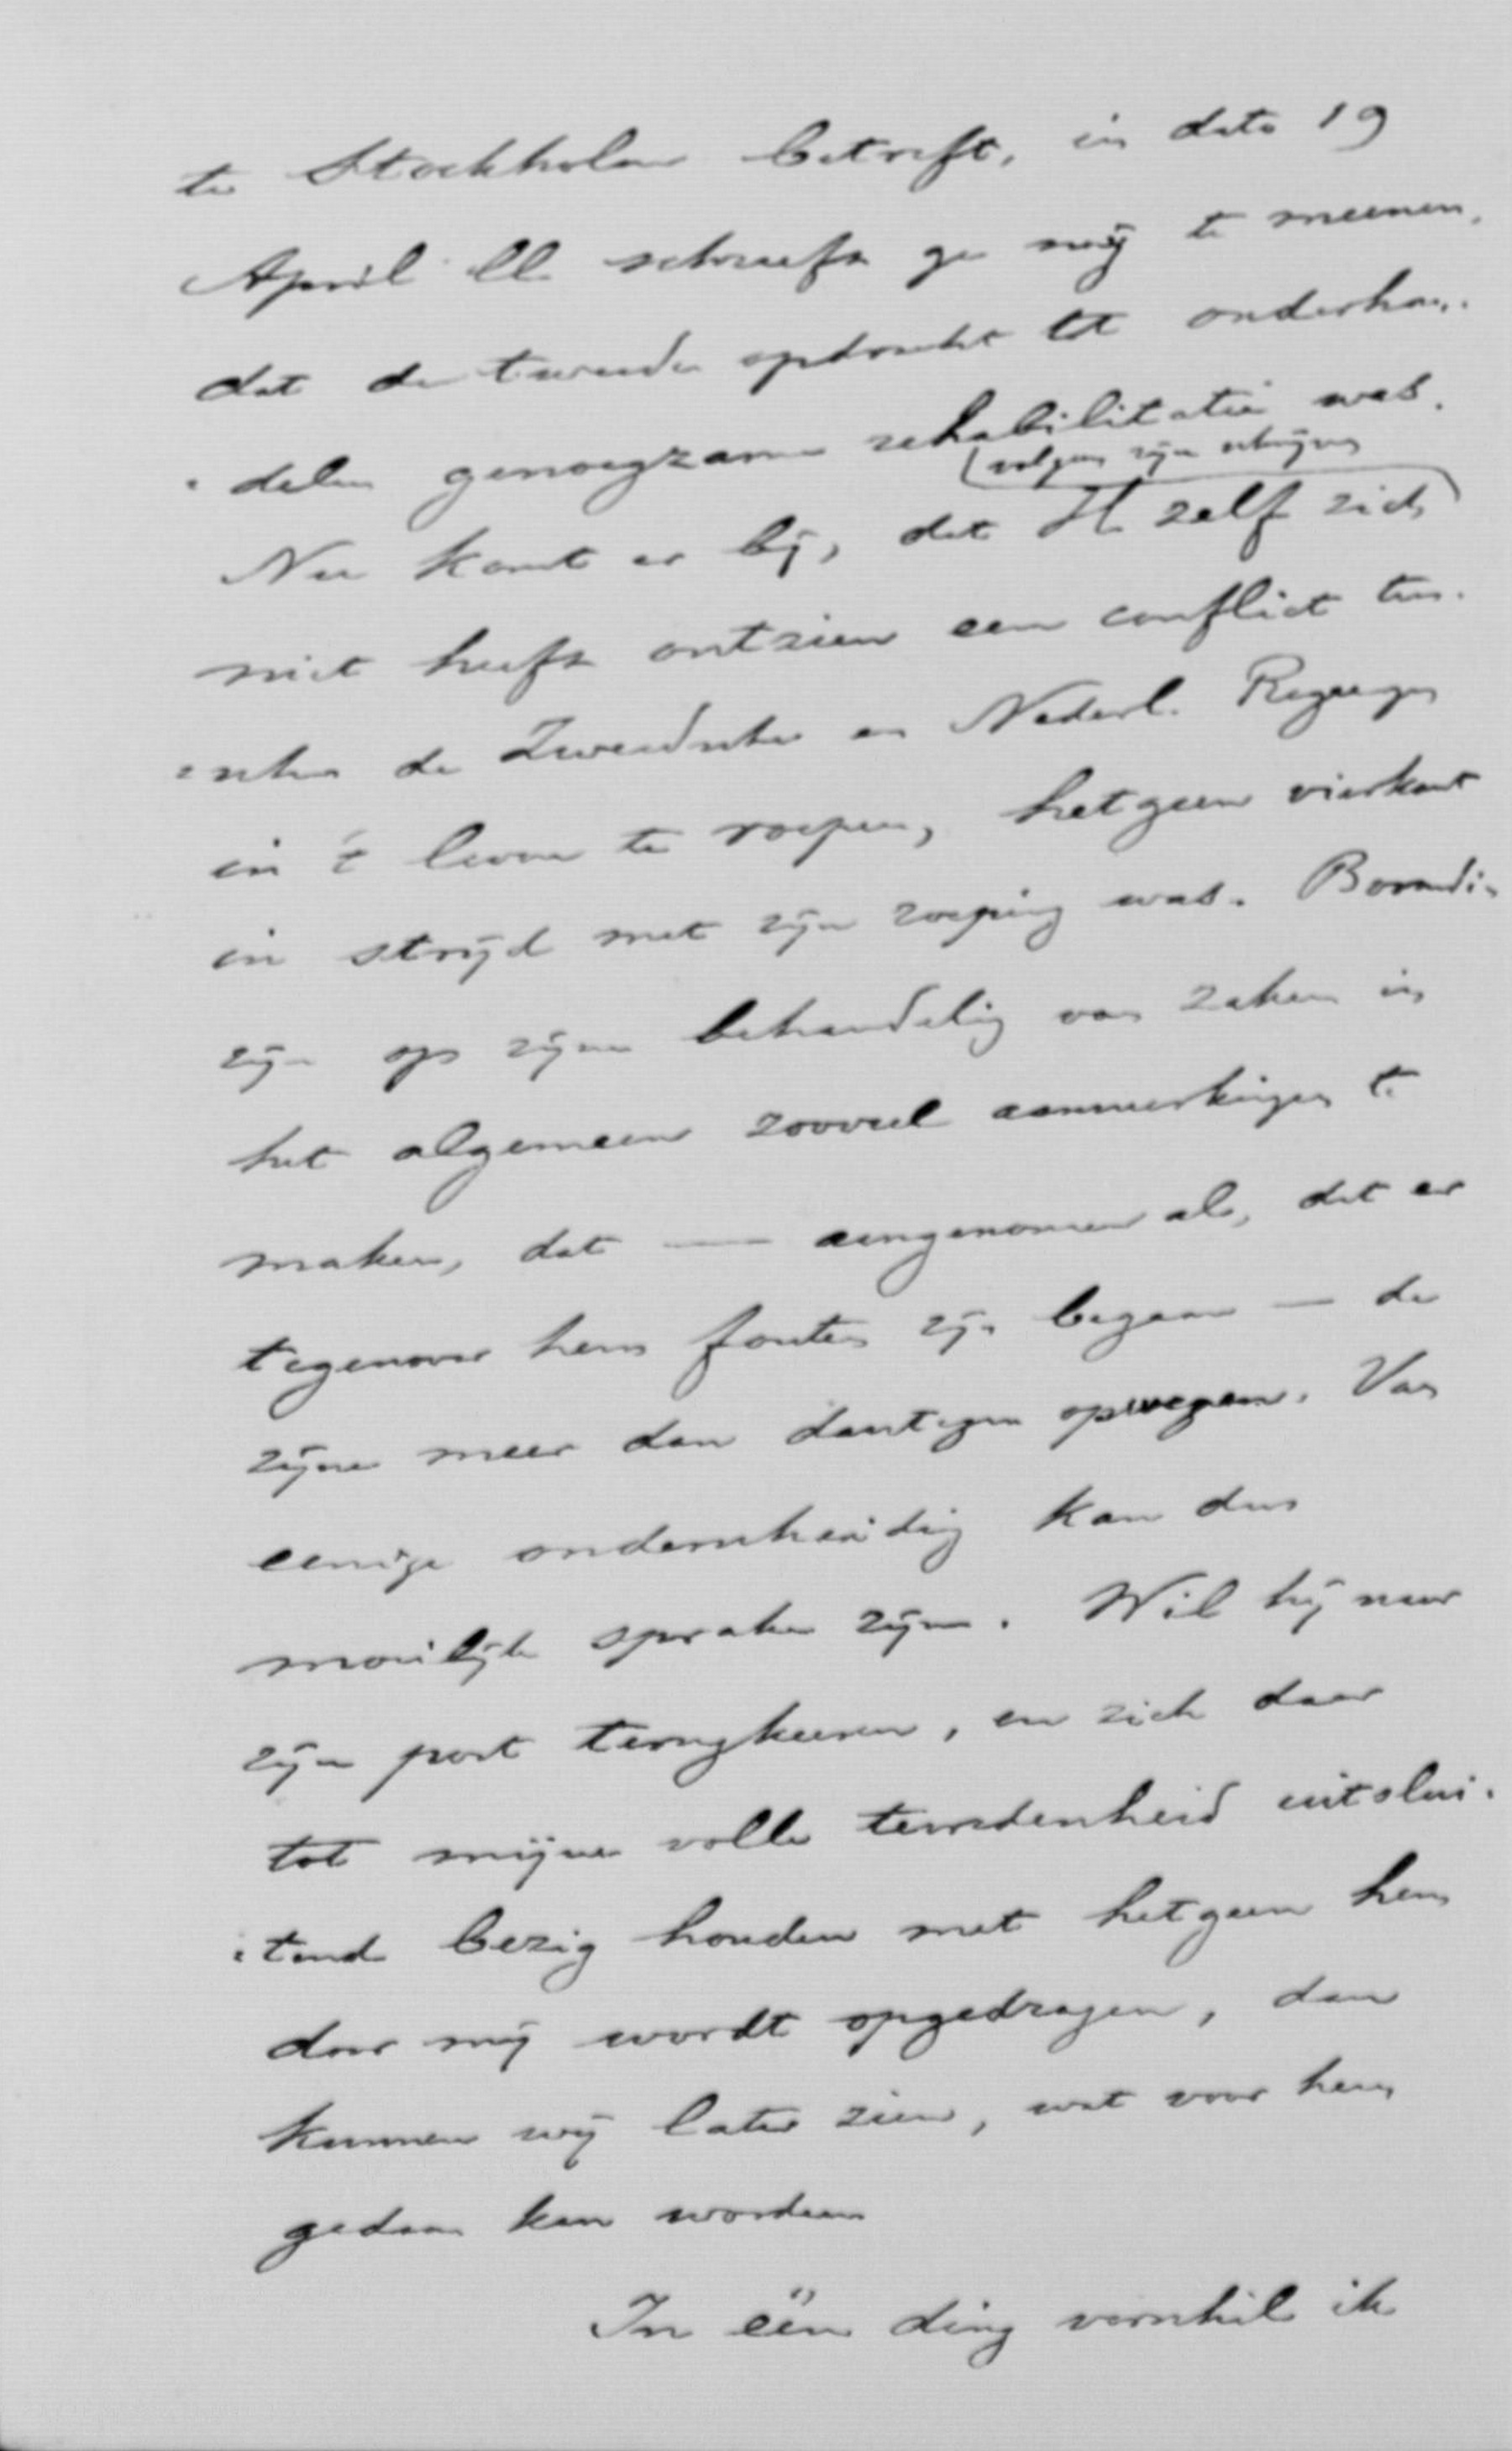 te Stockholm betreft, in dato 19
April ll schreeft ge mij te meenen,
dat de tweede opdracht tot onderhan-
-delen genoegzame rehabilitatie was.
(volgens zijn schrijven)
Nu komt er bij, dat H. zelf zich
niet heeft ontzien een conflict tus-
-schen de Zweedsche en Nederl. Regeeringen
in 't leven te roepen, hetgeen vierkant
in strijd met zijn roeping was. Bovendien
zijn op zijne behandeling van zaken in
het algemeen zooveel aanmerkingen te
maken, dat — aangenomen al, dat er
tegenover hem fouten zijn begaan — de
zijne meer dan daartegen opwegen. Van
eenige onderscheiding kan dus
moeilijk sprake zijn. Wil hij naar
zijn post terugkeeren, en zich daar
tot mijne volle tevredenheid uitslui-
-tend bezig houden met hetgeen hem
door mij wordt opgedragen, dan
kunnen wij later zien, wat voor hem
gedaan kan worden
In één ding verschil ik